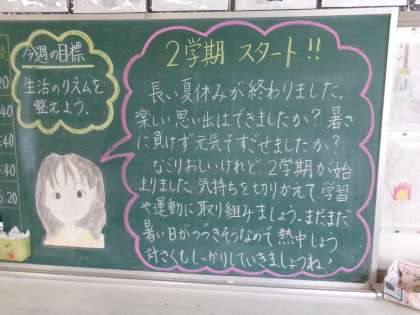 今週の目標
生活のリズムを
整えよう.
2学期 スタート!!
長い夏休みが終わりました.
楽しい思い出はできましたか?暑さ
に負けず元気にすごせましたか?
なごりおしいけれど、2学期が始
まりました.気持ちを切りかえて学習
や運動に取り組みましょう.まだまだ
暑い日がつづきそうなので熱中しょう
対さくもしっかりしていきましょうね!
20
:40
:40
5:20